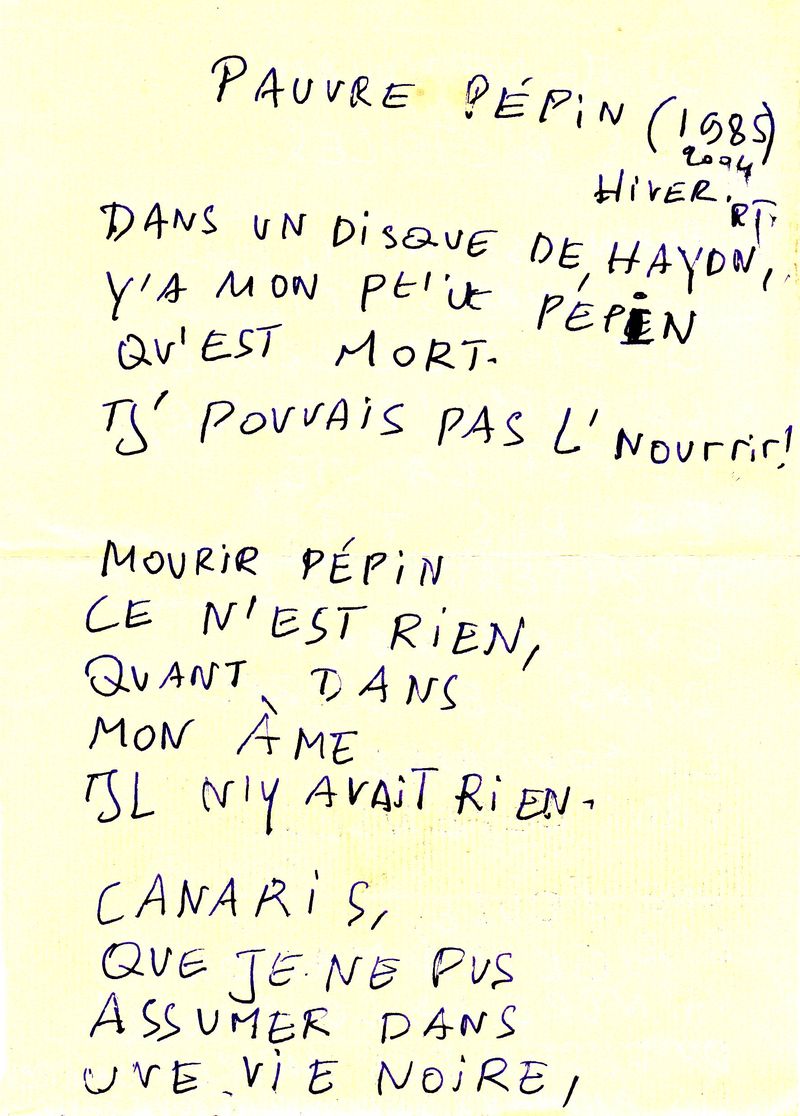 PAUVRE PÉPiN (1985)
2004
HiVER.
RT.
DANS UN DiSQUE DE HAYDN,
Y'A MON PEI'UE PÉPiN
QU'EST MORT.
J' POUVAiS PAS L' Nourrir!
MOURiR PÉPiN
CE N'EST RiEN,
QUANT DANS
MON ÀME
IL N'Y AVAiT RiEN.
CANARiS,
QUE JE NE PUS
ASSUMER DANS
UNE ViE NOiRE,